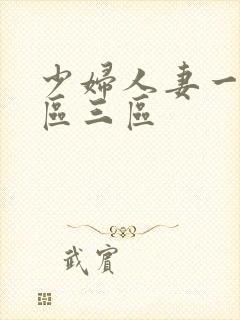 少婦人妻一
區三區
武賓